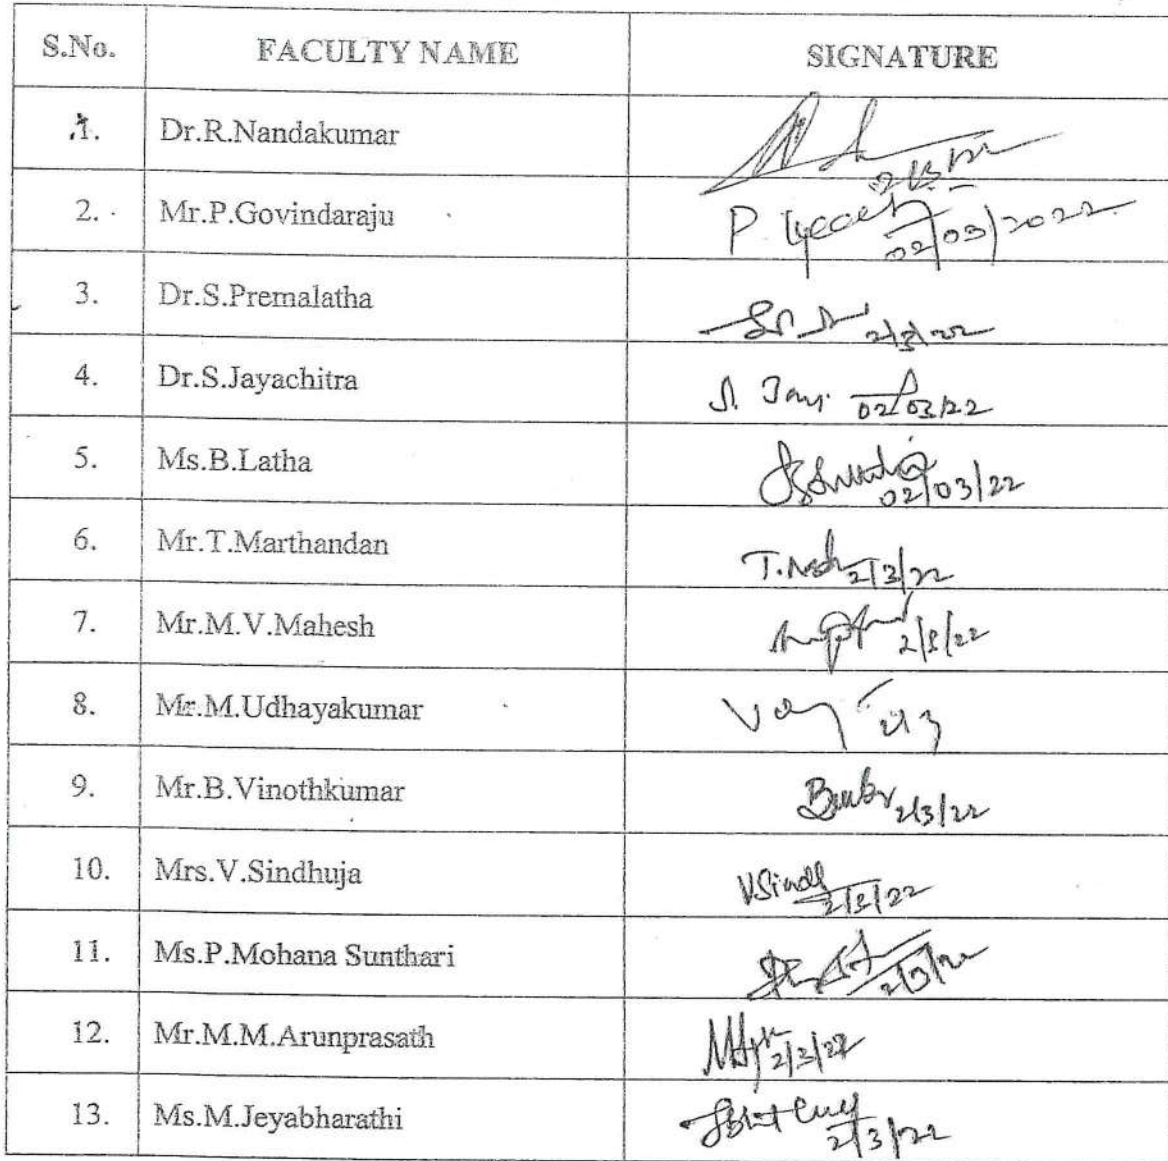 S.No. FACULTY NAME SIGNATURE
1. Dr.R.Nandakumar 2/3/22
2. Mr.P.Govindaraju P. 02/03/2022
3. Dr.S.Premalatha 2/3/22
4. Dr.S.Jayachitra S. Jay. 02/03/22
5. Ms.B.Latha 02/03/22
6. Mr.T.Marthandan 2/3/22
7. Mr.M.V.Mahesh 2/3/22
8. Mr.M.Udhayakumar
9. Mr.B.Vinothkumar 2/3/22
10. Mrs.V.Sindhuja V.Sindh 2/3/22
11. Ms.P.Mohana Sunthari 2/3/22
12. Mr.M.M.Arunprasath 2/3/22
13. Ms.M.Jeyabharathi 2/3/22